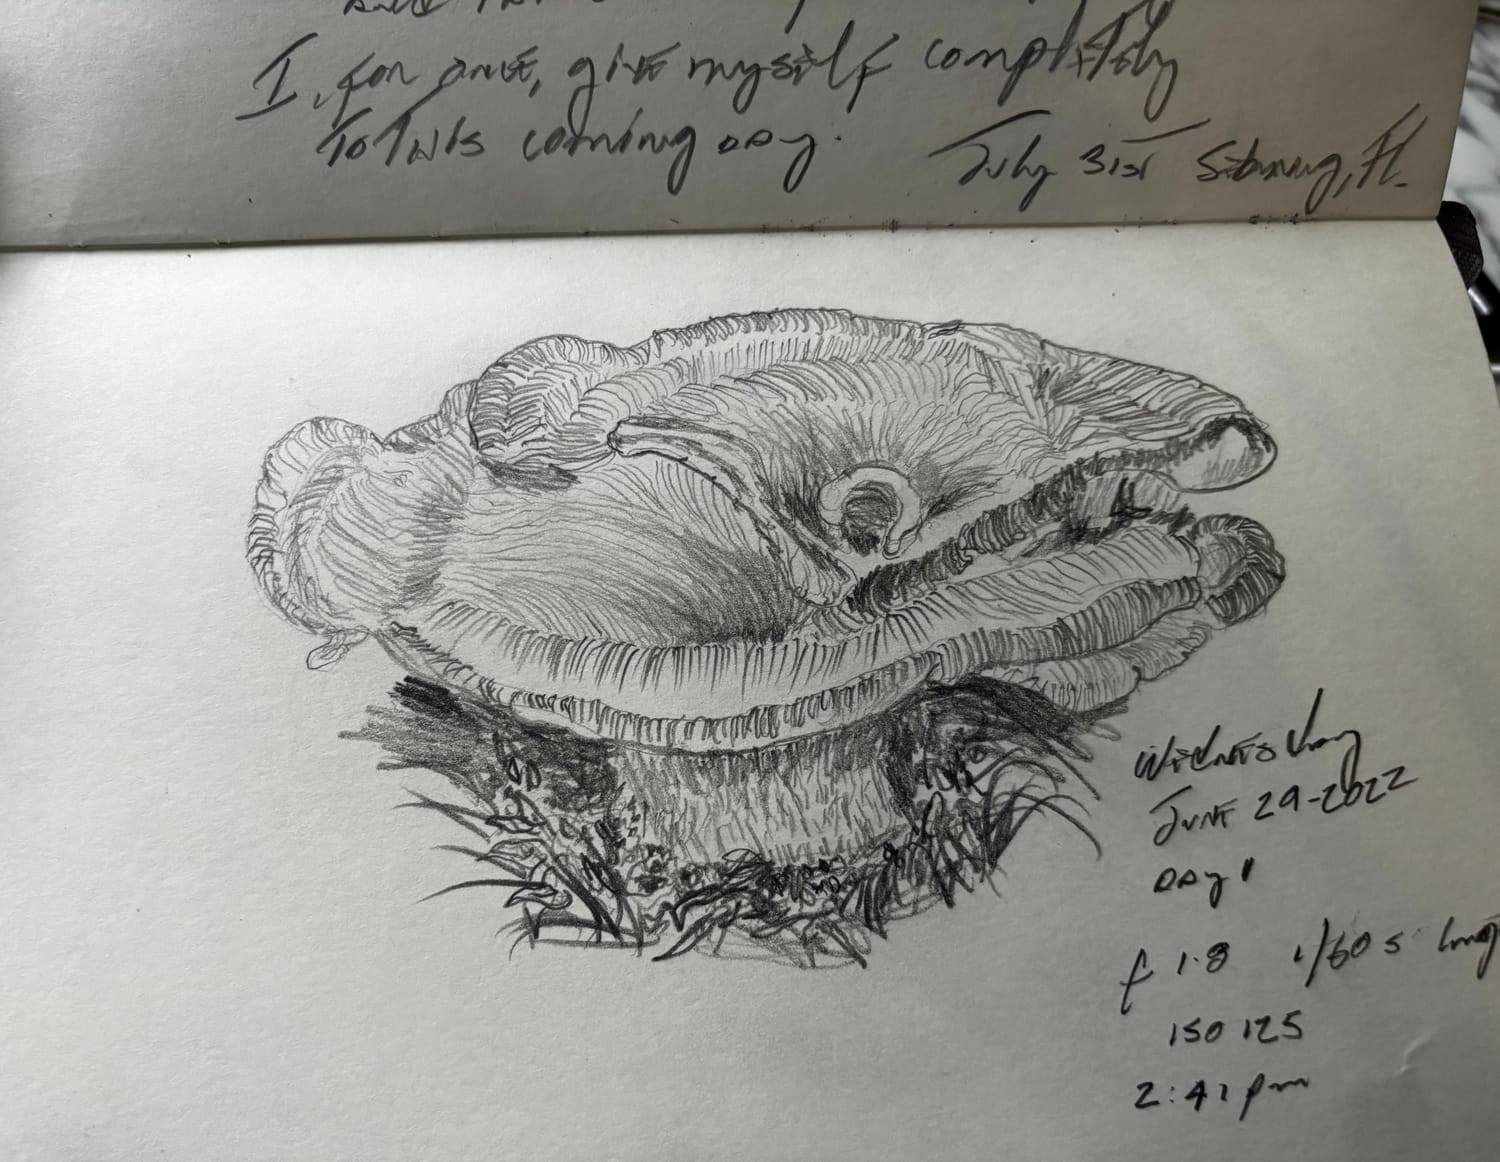 I, for one, give myself completely
To This coming day.
July 31st Sebring, Fl.
Wednesday
June 29-2022
Day 1
f 1.8 1/60 s
ISO 125
2:41 pm